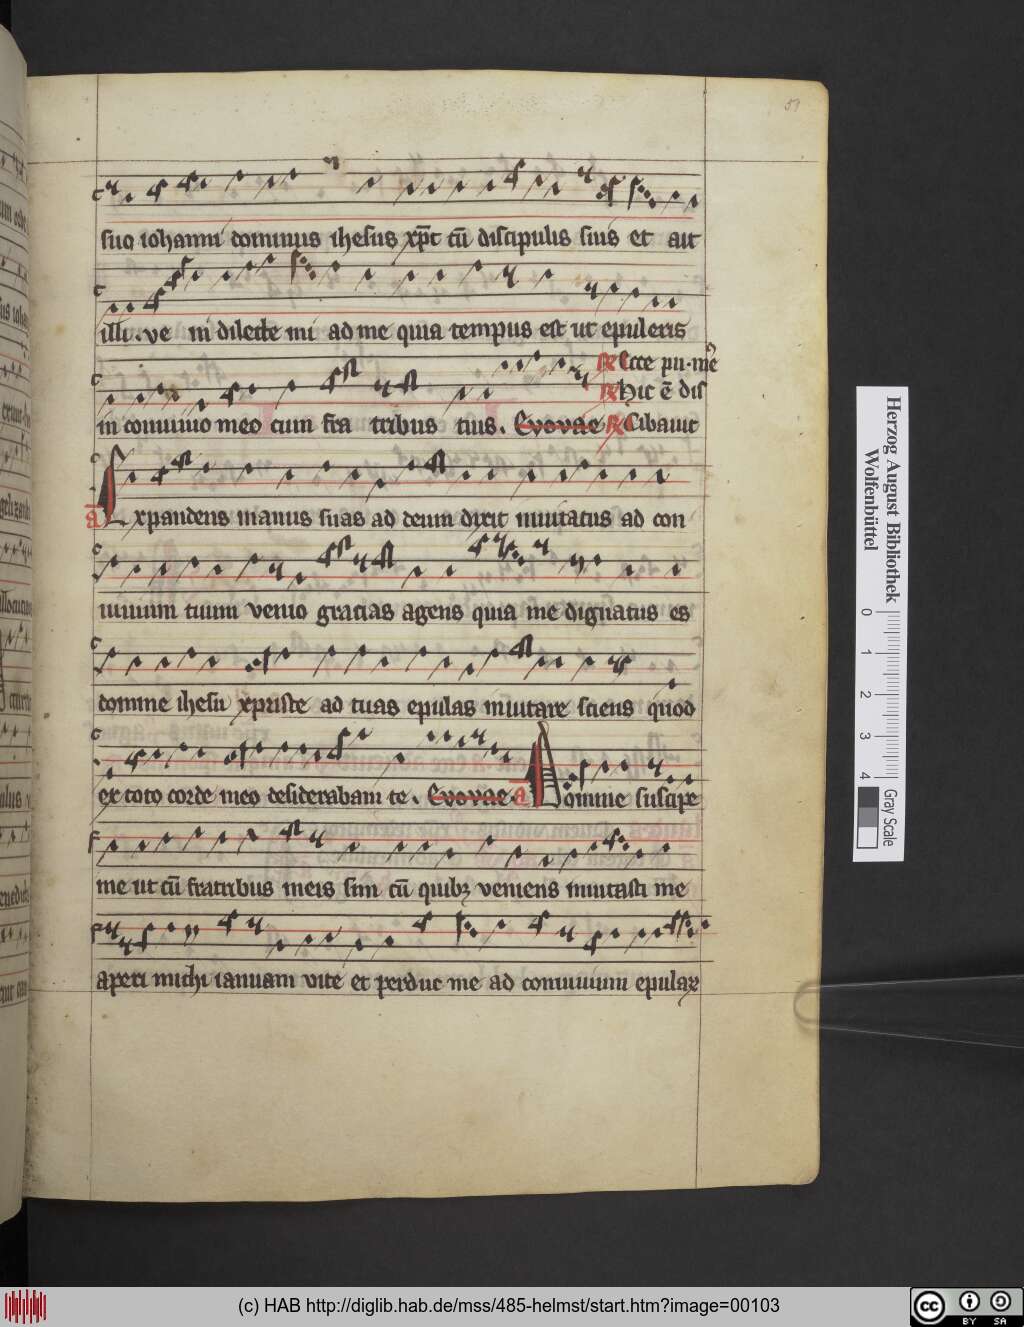 51
suo iohanni dominus ihesus xp̄c cū discipulis suis et ait
illi . ve ni dilecte mi ad me quia tempus est ut epuleris
℞ Ecce pu·
℞ Hic ē dis
in conuiuio meo cum fra tribus tuis . Evovae ℞ Cibauit
a Expandens manus suas ad deum dixit inuitatus ad con
uiuium tuum venio gracias agens quia me dignatus es
domine ihesu xpriste ad tuas epulas inuitare sciens quod
ex toto corde meo desiderabam te . Evovae . a Domine suscipe
me ut cū fratribus meis sim cū quibꝫ veniens inuitasti me
aperi michi ianuam vite et perduc me ad conuiuium epulaꝝ
Herzog August Bibliothek
Wolfenbüttel
0 1 2 3 4
Gray Scale
(c) HAB http://diglib.hab.de/mss/485-helmst/start.htm?image=00103
cc BY SA